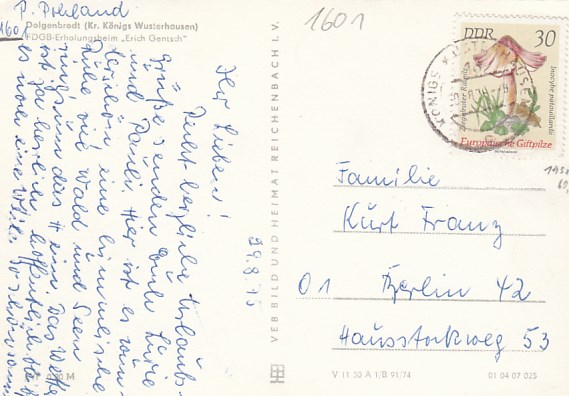 P. Pohland
1601
Dolgenbrodt (Kr. Königs Wusterhausen)
FDGB-Erholungsheim „Erich Gentsch"
1601
Ihr Lieben!
Recht herzliche Urlaubs-
grüße senden Euch
und Paul. Hier ist es
herrlich, eine himmlische
Ruhe viel Wald und Seen
ringsum das Heim. Das
ist ja herrlich, hoffentlich
es noch eine Weile so
29.8.75
VEB BILD UND HEIMAT REICHENBACH I. V.
DDR 30
Ziegelroter Rißpilz
Inocybe patouillardii
Europäische Giftpilze
KÖNIGS WUSTERHAUSEN
Familie
Kurt Franz
01 Berlin 42
Hausstockweg 53
M
V 11 50 A 1/B 91/74
01 04 07 025